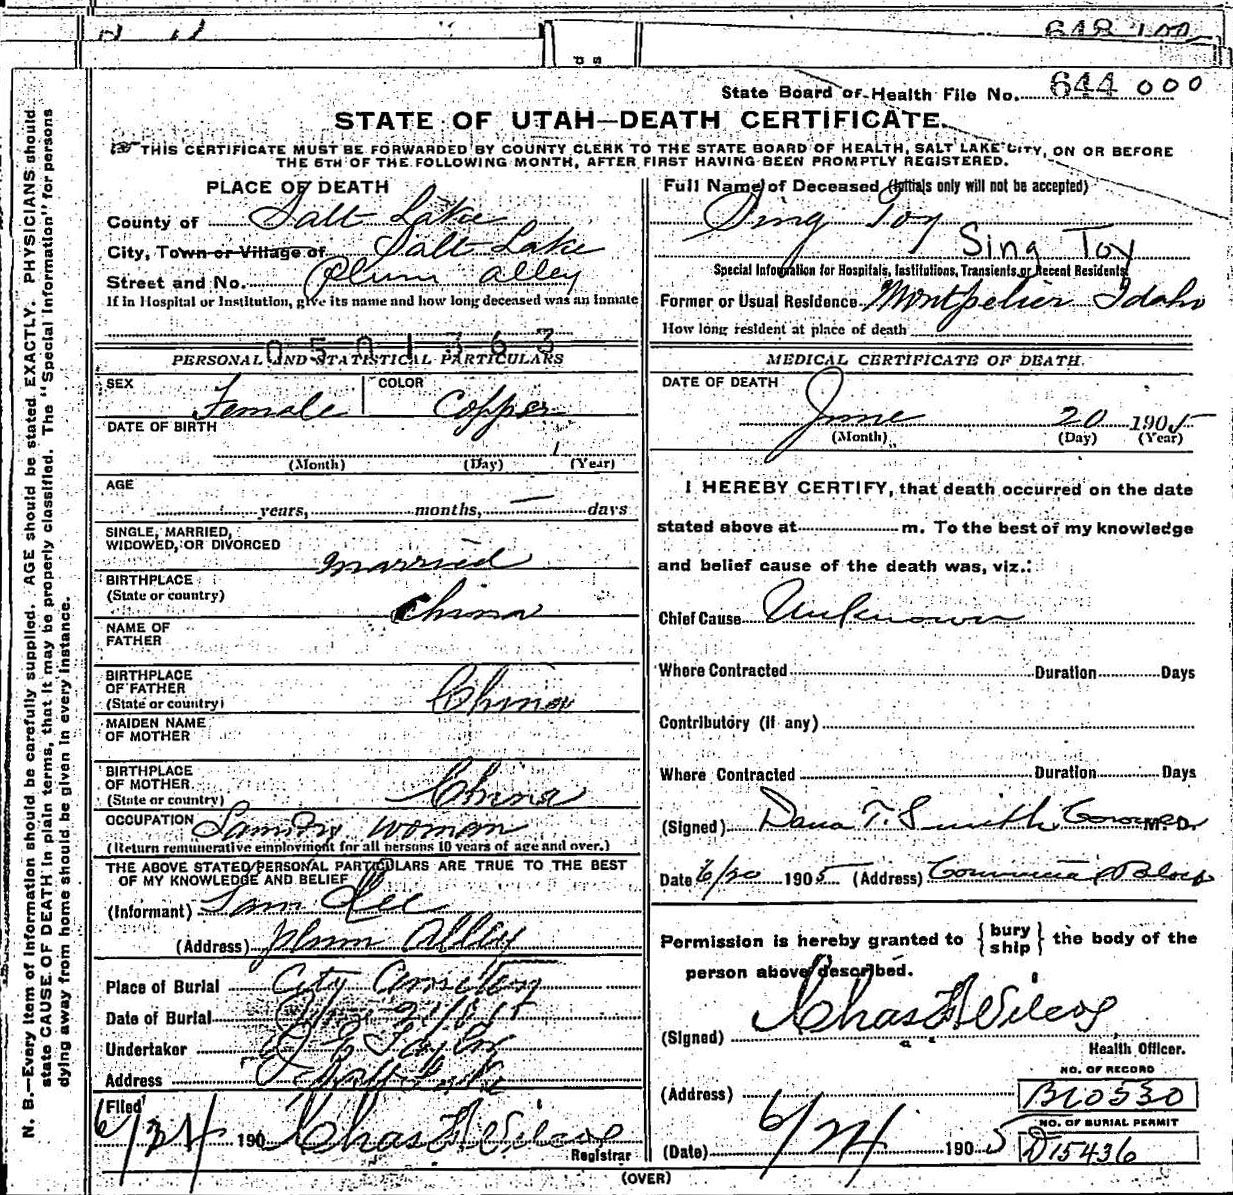 648 100
State Board of Health File No. 644 000
STATE OF UTAH—DEATH CERTIFICATE.
THIS CERTIFICATE MUST BE FORWARDED BY COUNTY CLERK TO THE STATE BOARD OF HEALTH, SALT LAKE CITY, ON OR BEFORE
THE 5TH OF THE FOLLOWING MONTH, AFTER FIRST HAVING BEEN PROMPTLY REGISTERED.
N. B.—Every item of information should be carefully supplied. AGE should be stated EXACTLY. PHYSICIANS should
state CAUSE OF DEATH in plain terms, that it may be properly classified. The "Special Information" for persons
dying away from home should be given in every instance.
PLACE OF DEATH
County of Salt Lake
City, Town or Village of Salt Lake
Street and No. Plum alley
If in Hospital or Institution, give its name and how long deceased was an inmate
0501363
PERSONAL AND STATISTICAL PARTICULARS
SEX Female COLOR Copper
DATE OF BIRTH
(Month) (Day) (Year)
AGE
years, months, — days
SINGLE, MARRIED,
WIDOWED, OR DIVORCED married
BIRTHPLACE
(State or country) China
NAME OF
FATHER
BIRTHPLACE
OF FATHER
(State or country) China
MAIDEN NAME
OF MOTHER
BIRTHPLACE
OF MOTHER
(State or country) China
OCCUPATION woman
(Return remunerative employment for all persons 10 years of age and over.)
THE ABOVE STATED PERSONAL PARTICULARS ARE TRUE TO THE BEST
OF MY KNOWLEDGE AND BELIEF
(Informant) Sam Lee
(Address) Plum Alley
Place of Burial City Cemetery
Date of Burial
Undertaker
Address Salt Lake
Filed
6/24 190 Chas F Wilcox
Registrar
Full Name of Deceased (Initials only will not be accepted)
Sing Toy
Sing Toy
Special Information for Hospitals, Institutions, Transients or Recent Residents
Former or Usual Residence Montpelier Idaho
How long resident at place of death
MEDICAL CERTIFICATE OF DEATH.
DATE OF DEATH
June 20 1905
(Month) (Day) (Year)
I HEREBY CERTIFY, that death occurred on the date
stated above at m. To the best of my knowledge
and belief cause of the death was, viz.:
Chief Cause Unknown
Where Contracted Duration Days
Contributory (if any)
Where Contracted Duration Days
(Signed) Dana T. Smith Coroner M. D.
Date 6/20 1905 (Address) Block
Permission is hereby granted to {bury
ship} the body of the
person above described.
(Signed) Chas F Wilcox
Health Officer.
(Address)
NO. OF RECORD
B10530
NO. OF BURIAL PERMIT
D15436
(Date) 6/24 1905
(OVER)